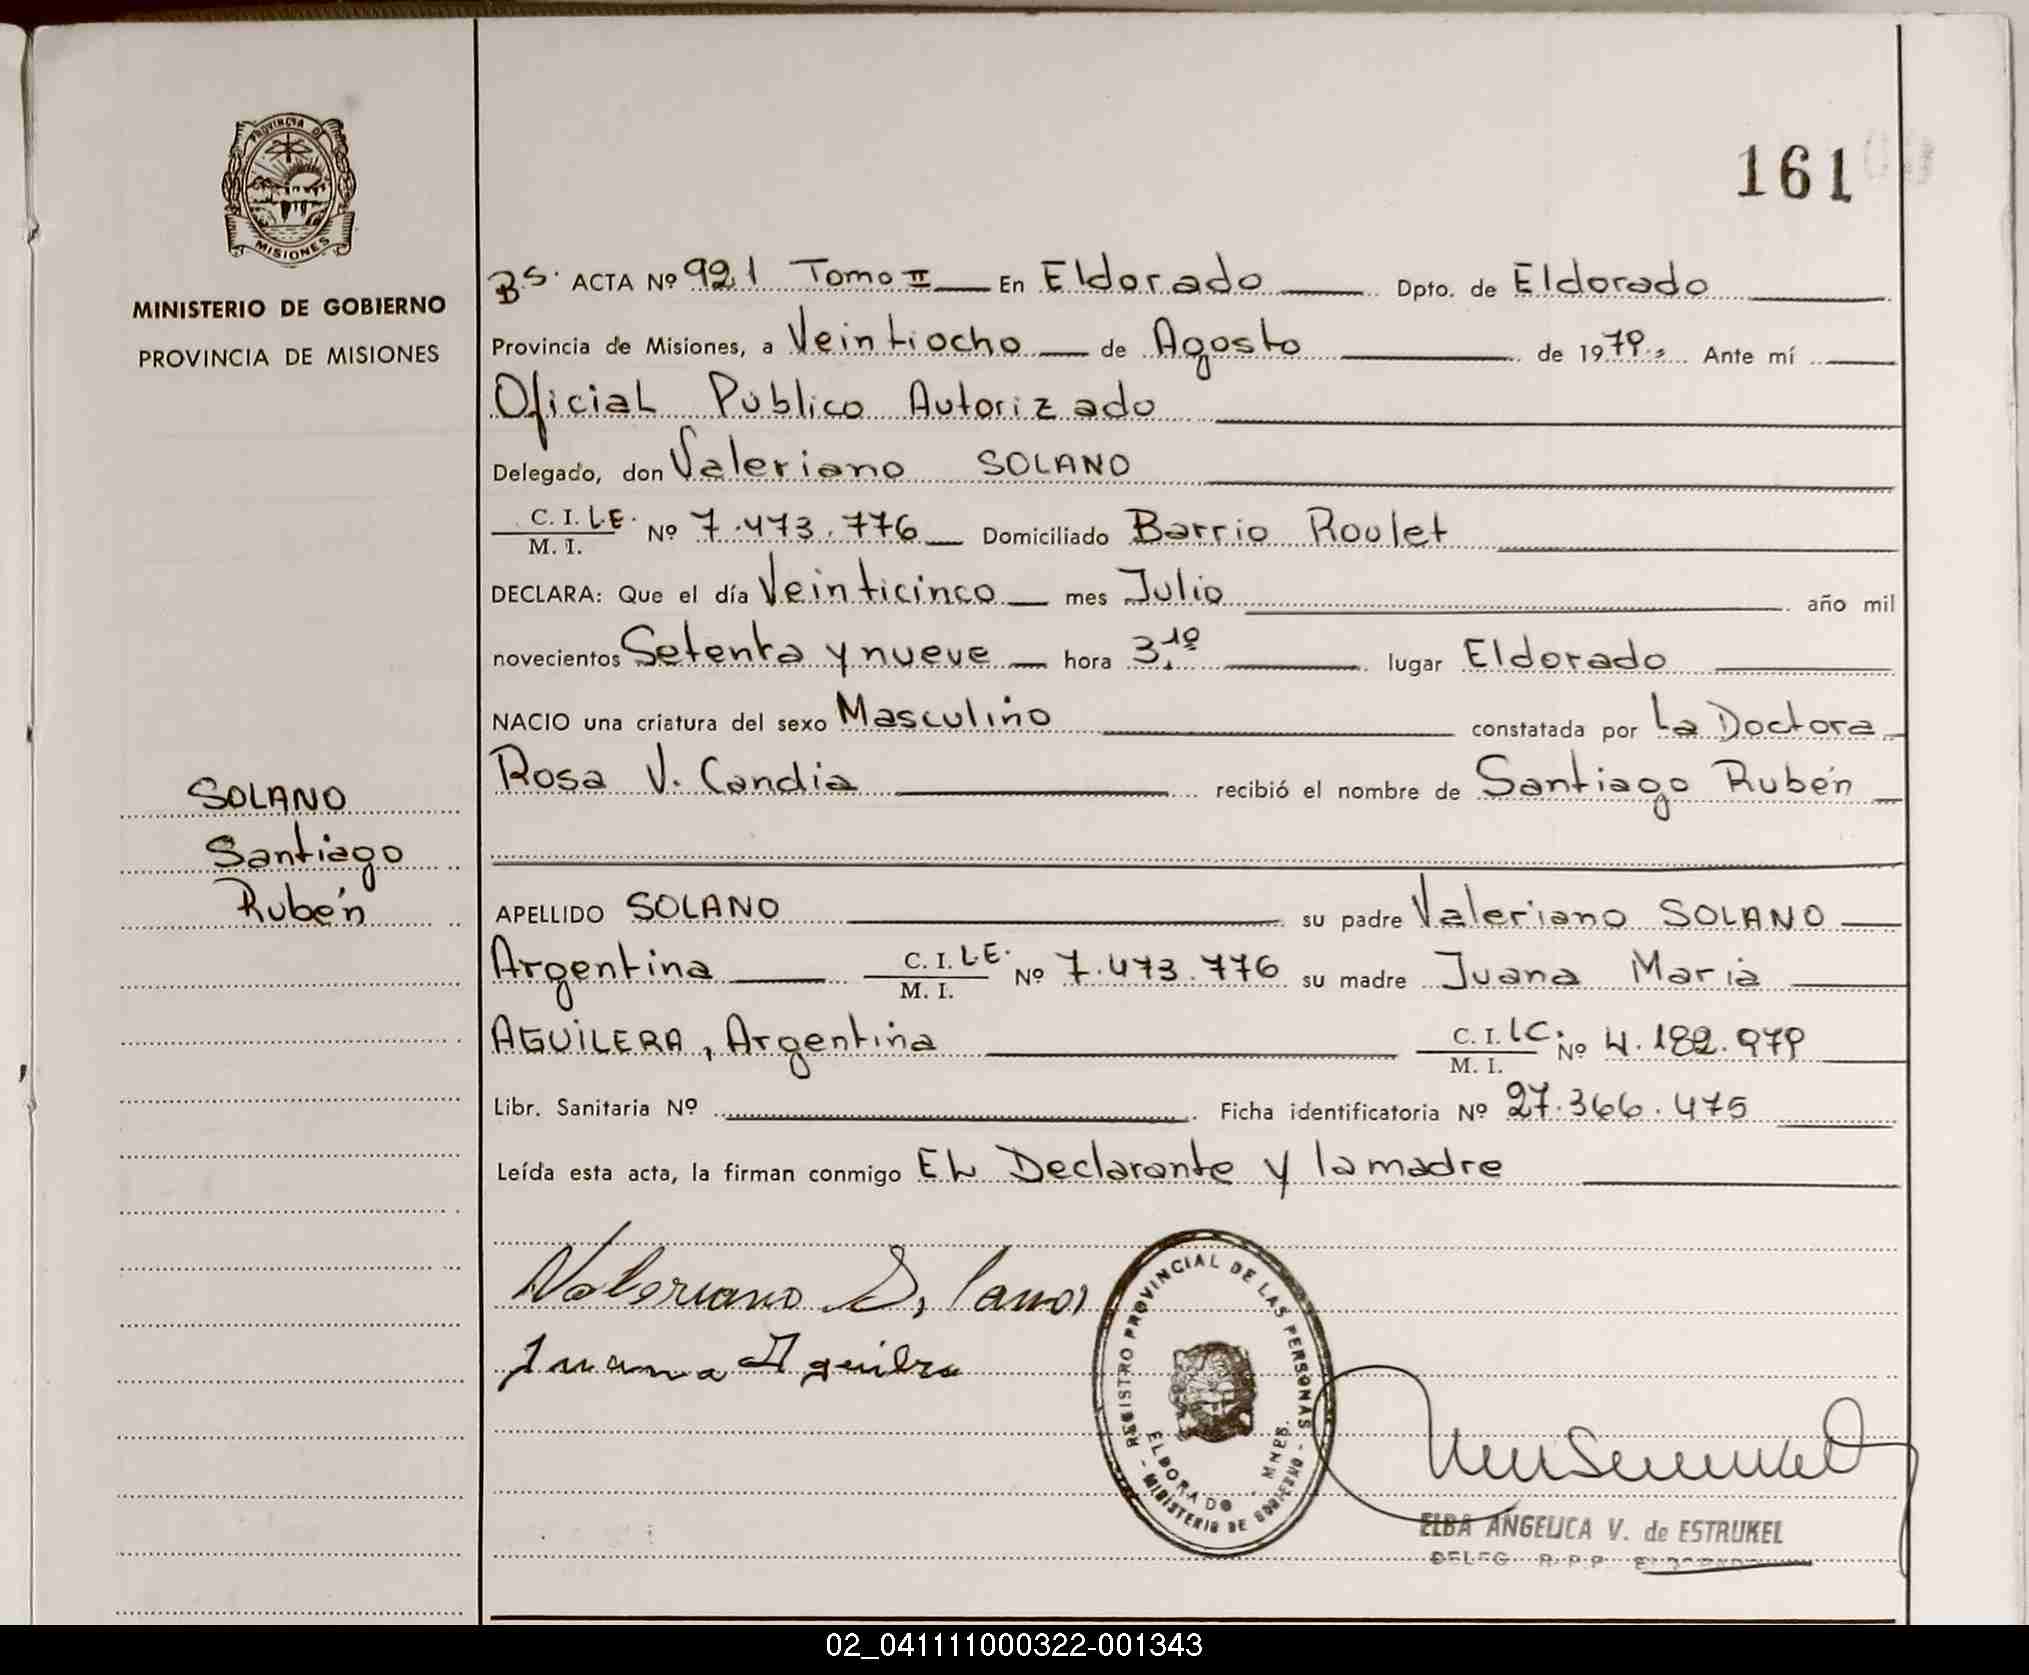 PROVINCIA DE
MISIONES
MINISTERIO DE GOBIERNO
PROVINCIA DE MISIONES
161
Bs. ACTA Nº 921 Tomo II En Eldorado Dpto. de Eldorado
Provincia de Misiones, a Veintiocho de Agosto de 1979.- Ante mí
Oficial Publico Autorizado
Delegado, don Valeriano SOLANO
C. I. L.E. Nº 7.473.776 Domiciliado Barrio Roulet
M. I.
DECLARA: Que el día Veinticinco mes Julio año mil
novecientos Setenta y nueve hora 3.10 lugar Eldorado
NACIO una criatura del sexo Masculino constatada por La Doctora
Rosa V. Candia recibió el nombre de Santiago Rubén
SOLANO
Santiago
Rubén
APELLIDO SOLANO su padre Valeriano SOLANO
Argentina C. I. L.E. Nº 7.473.776 su madre Juana Maria
M. I.
AGUILERA, Argentina C. I. LC. Nº 4.182.979
M. I.
Libr. Sanitaria Nº Ficha identificatoria Nº 27.366.475
Leída esta acta, la firman conmigo EL Declarante y la madre
Valeriano
Juana Aguilera
REGISTRO PROVINCIAL DE LAS PERSONAS
- MINISTERIO DE GOBIERNO -
ELDORADO - MNES.
ELBA ANGELICA V. de ESTRUKEL
DELEG. R.P.P. ELDORADO
02_041111000322-001343